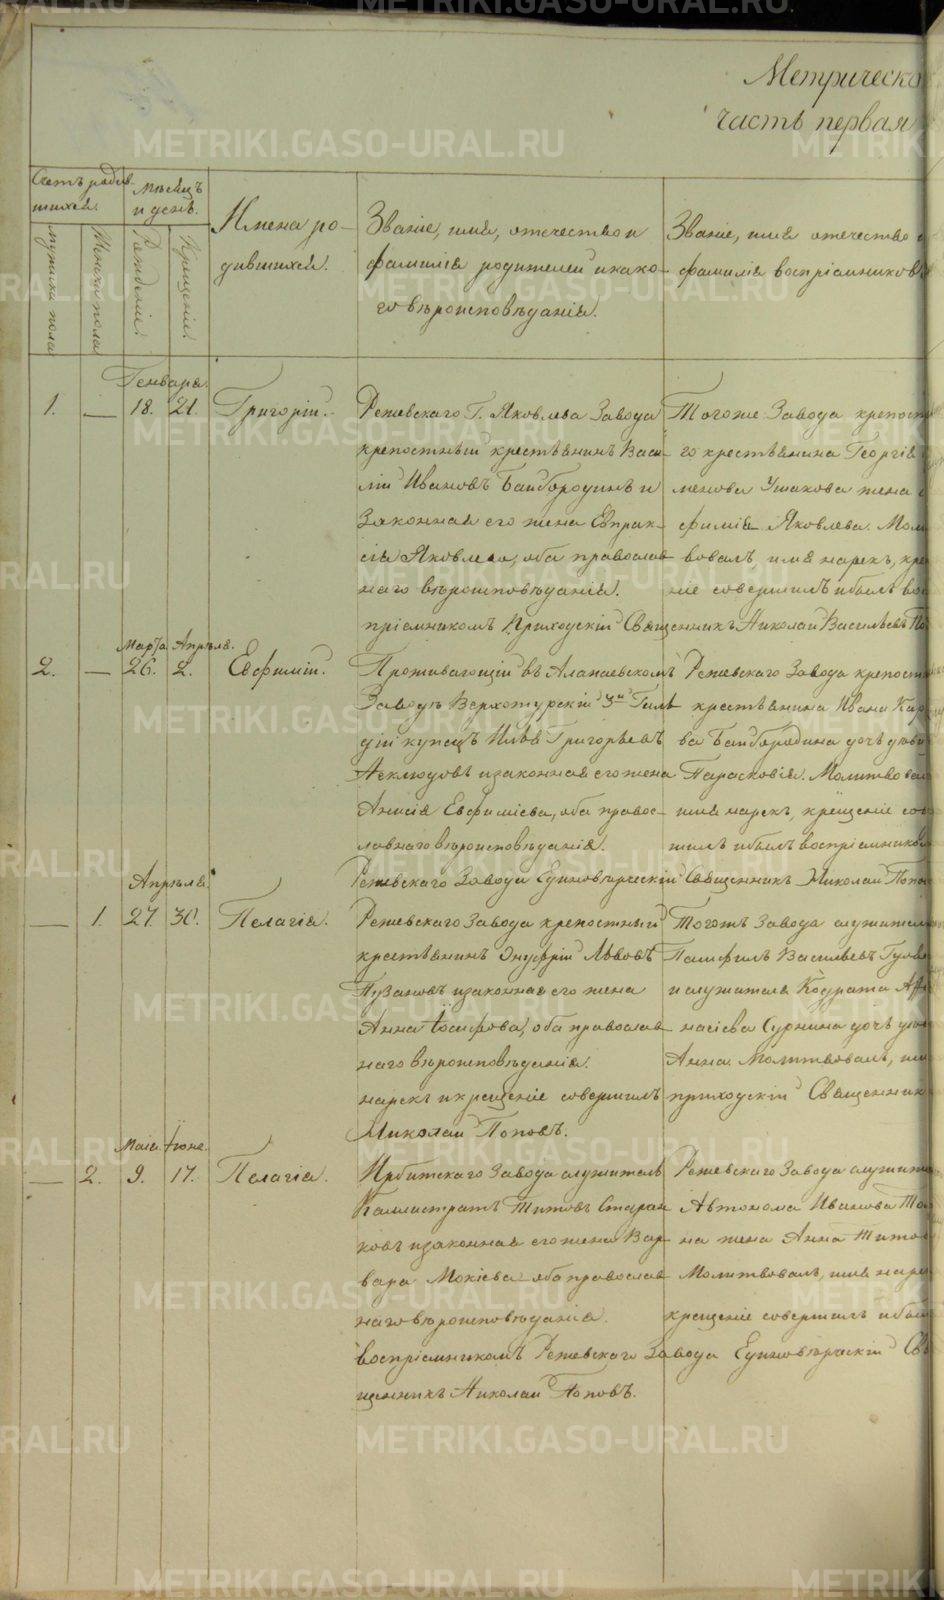 Метрическо
часть первая
Счетъ родив-
шихся.
Мѣсяцъ
и день.
мужска пола
Женска пола
Рожденія.
Крещенія.
Имена ро-
дившихся.
Званіе, имя, отечество и
фамилія родителей и како-
го вѣроисповѣданія.
Званіе, имя отечество
фамилія воспріемников
Генваря.
1. — 18. 21. Григорій.
Режевскаго Г. Яковлева Завода
крепостный крестьянинъ Васи-
лій Ивановъ Байбородинъ и
Законная его жена Евпрак-
сія Яковлева, оба православ-
наго вѣроисповѣданія.
Тогоже Завода крепост
го крестьянина Георгія
менова Ушакова жена
фимія Яковлева. Мол
вовалъ, имя нарекъ, кре
ніе совершилъ и былъ вос
пріемникомъ Приходскій Священникъ Николай Васильевъ По
Марта Апрѣля.
2. — 26. 2. Евфимій.
Проживающій въ Алапаевскомъ
Заводѣ Верхотурскій 3й Гиль
дій купецъ Илья Григорьевъ
Неклюдовъ и законная его жена
Анисія Евфиміева, оба правос-
лавнаго вѣроисповѣданія.
Режевскаго Завода крепост
крестьянина Ивана Кар
ва Байбородина дочь дѣви
Парасковія. Молитвовал
имя нарекъ, крещеніе сов
шилъ и былъ воспріемником
Режевскаго Завода Единовѣрческій Священникъ Николай Попо
Апрѣля.
— 1. 27. 30. Пелагія.
Режевскаго Завода крепостный
крестьянинъ Онуфрій Львовъ
Пузановъ и законная его жена
Анна Іосифова, оба православ-
наго вѣроисповѣданія.
Тогожъ Завода служител
Памфилъ Васильевъ
и служителя Кодрата Афа
насіева Сурнина дочь дѣв
Анна. Молитвовалъ, им
нарекъ и крещеніе совершилъ приходскій Священник
Николай Поповъ.
Маія Іюня.
— 2. 9. 17. Пелагія.
Ирбитскаго Завода служитель
Каллистратъ Титовъ Старан
ковъ и законная его жена Вар
вара Мокіева оба православ
наго вѣроисповѣданія.
Режевскаго Завода служит
Автонома Иванова То
на жена Анна Титов
Молитвовалъ, имя наре
крещеніе совершилъ и был
воспріемникомъ Режевскаго Завода Единовѣрческій Св
щенникъ Николай Поповъ.
METRIKI.GASO-URAL.RU